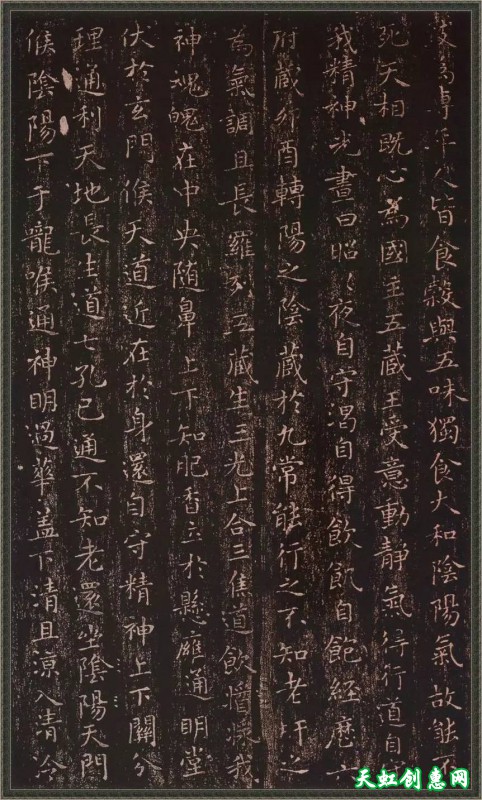 為專年人皆食穀與五味獨食大和陰陽氣故能
死天相既心為國主五藏王受意動靜氣得行道自
我精神光晝日昭〻夜自守渴自得飲飢自飽經歷六
府藏卯酉轉陽之陰藏於九常能行之不知老肝之
為氣調且長羅列五藏生三光上合三焦道飲醬漿我
神魂魄在中央隨鼻上下知肥香立於懸膺通明堂
伏於玄門候天道近在於身還自守精神上下關分
理通利天地長生道七孔已通不知老還坐陰陽天門
候陰陽下于嚨喉通神明過華蓋下清且涼入清泠
天虹创惠网